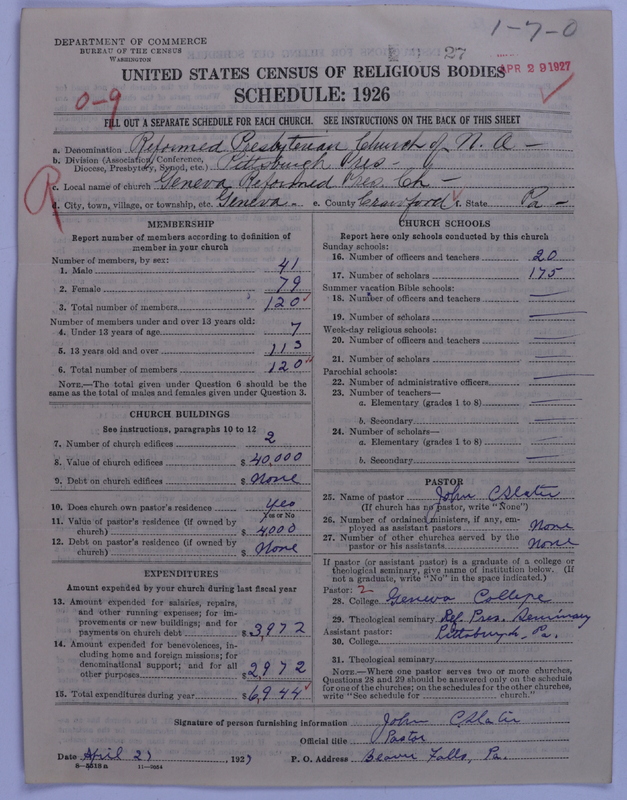 1-7-0
DEPARTMENT OF COMMERCE
BUREAU OF THE CENSUS
WASHINGTON
27
APR 29 1927
UNITED STATES CENSUS OF RELIGIOUS BODIES
SCHEDULE: 1926
0-9
FILL OUT A SEPARATE SCHEDULE FOR EACH CHURCH. SEE INSTRUCTIONS ON THE BACK OF THIS SHEET
R
a. Denomination Reformed Presbyterian Church of N. A -
b. Division (Association, Conference, Diocese, Presbytery, Synod, etc.) Pittsburgh Pres -
c. Local name of church Geneva Reformed Pres. Ch -
d. City, town, village, or township, etc. Geneva - e. County Crawford f. State Pa -
MEMBERSHIP
Report number of members according to definition of
member in your church
Number of members, by sex:
1. Male 41
2. Female 79
3. Total number of members 120
Number of members under and over 13 years old:
4. Under 13 years of age 7
5. 13 years old and over 113
6. Total number of members 120
NOTE.—The total given under Question 6 should be the
same as the total of males and females given under Question 3.
CHURCH BUILDINGS
See instructions, paragraphs 10 to 12
7. Number of church edifices 2
8. Value of church edifices $ 40,000
9. Debt on church edifices $ None
10. Does church own pastor's residence yes
Yes or No
11. Value of pastor's residence (if owned by
church) $ 4000
12. Debt on pastor's residence (if owned by
church) $ None
EXPENDITURES
Amount expended by your church during last fiscal year
13. Amount expended for salaries, repairs,
and other running expenses; for im-
provements or new buildings; and for
payments on church debt $ 3,972
14. Amount expended for benevolences, in-
cluding home and foreign missions; for
denominational support; and for all
other purposes $ 2,972
15. Total expenditures during year $ 6,944
CHURCH SCHOOLS
Report here only schools conducted by this church
Sunday schools:
16. Number of officers and teachers 20
17. Number of scholars 175
Summer vacation Bible schools:
18. Number of officers and teachers —
19. Number of scholars —
Week-day religious schools:
20. Number of officers and teachers —
21. Number of scholars —
Parochial schools:
22. Number of administrative officers —
23. Number of teachers—
a. Elementary (grades 1 to 8) —
b. Secondary —
24. Number of scholars—
a. Elementary (grades 1 to 8) —
b. Secondary —
PASTOR
25. Name of pastor John C Slater
(If church has no pastor, write "None")
26. Number of ordained ministers, if any, em-
ployed as assistant pastors None
27. Number of other churches served by the
pastor or his assistants None
If pastor (or assistant pastor) is a graduate of a college or
theological seminary, give name of institution below. (If
not a graduate, write "No" in the space indicated.)
Pastor: 2
28. College Geneva College
29. Theological seminary Ref. Pres. Seminary
Assistant pastor: Pittsburgh, Pa.
30. College
31. Theological seminary
NOTE.—Where one pastor serves two or more churches,
Questions 28 and 29 should be answered only on the schedule
for one of the churches; on the schedules for the other churches,
write "See schedule for church."
Signature of person furnishing information John C Slater
Official title Pastor
Date April 27, 1927 P. O. Address Beaver Falls, Pa.
8-5518a 11-9054